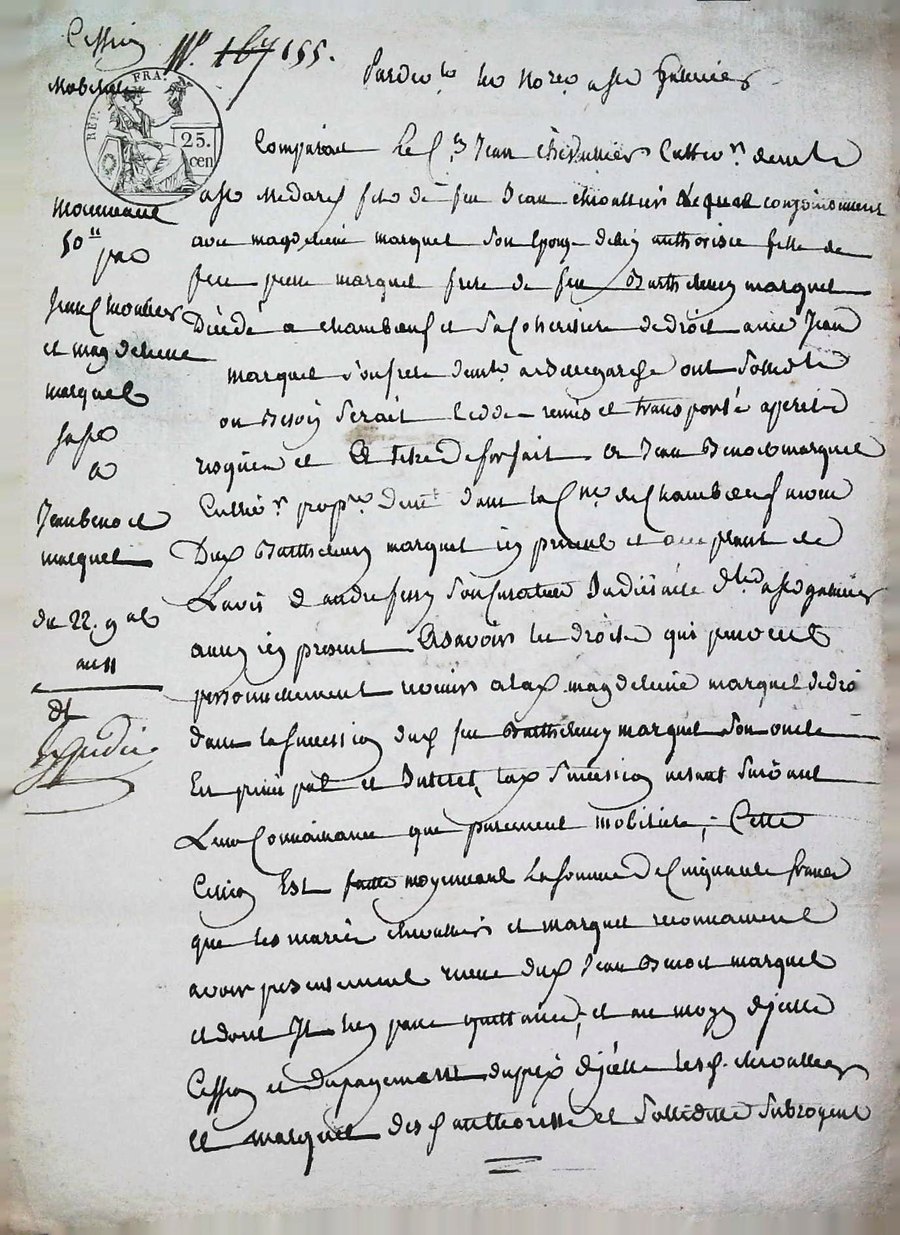 Cession
Mobiliaire
N.º 167 155.
REP. FRA.
25.
cen
Pardev.t les No.res a St galmier
Comparant Le C.en Jean chevallier Cultiv.r demt a
a St Medard fils de feu Jean chevallier Lequel conjointement
avec magdeleine marquet Son Epouse de luy authorisée fille de
feu pierre marquet frere de feu Barthelemy marquet
Décédé a chambœuf et Sa Coheritiere de droit avec Jean
marquet Son frere demt a Bellegarde ont Solid.t
ou Besoin Serait cedé remis et transporté a perils
risques et a titre de forfait a Jean Benoit marquet
Cultiv.r prop.re demt dans la C.ne de Chambœuf
Dud. Barthelemy marquet icy present et acceptant de
L'avis d andre Son Curateur Judiciaire d.t a St galmier
aussy icy present Asavoir les droits qui peuvent
personnellement revenir a lad. magdeleine marquet de dro
dans la succession dud. feu Barthelemy marquet Son oncle
En principal et Interet, lad. Succession n'etant Suivant
Leur Connaissance que purement mobiliere; Cette
Cession Est faite moyennant La Somme de Cinquante francs
que les mariés chevallier et marquet reconnaissent
avoir presentement recue dud. Jean Benoit marquet
et dont Ils luy passe quittance; et au moyen d'icelle
Cession et du payement du prix d'icelle Lesd. chevallier
et marquet des. authorisée et Sollidaire Subrogent
moiennant
50 ⁺⁺
par
Jean Chevallier
et magdeleine
marquet
sa fe
a
Jean benoit
marquet
du 22. 9 al
an 11